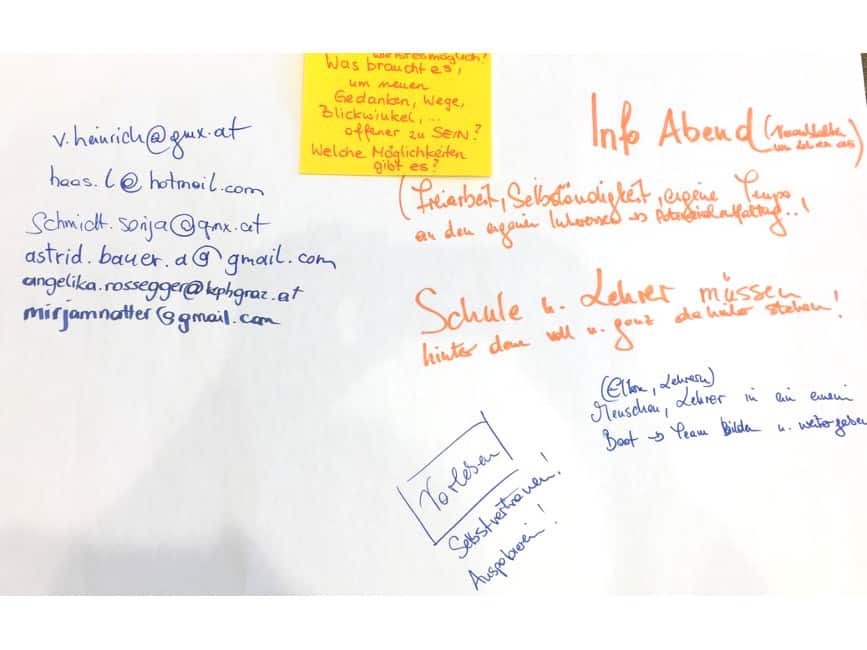 wie ist es möglich?
Was braucht es,
um neuen
Gedanken, Wege,
Blickwinkel, ...
offener zu SEIN?
Welche Möglichkeiten
gibt es?
v.heinrich@gmx.at
haas.l@hotmail.com
Schmidt.sonja@gmx.at
astrid.bauer.a@gmail.com
angelika.rossegger@kphgraz.at
mirjamnotter@gmail.com
Info Abend
(Freiarbeit, Selbständigkeit, eigene Tempo
an den eigenen Interessen → Potenzialentfaltung..!
Schule u. Lehrer müssen
hinter dem voll u. ganz dahinter stehen!
(Eltern, Lehrern)
Menschen, Lehrer in ein einem
Boot → Team bilden u. weitergeben
Vorlesen
Selbstvertrauen!
Ausprobieren!